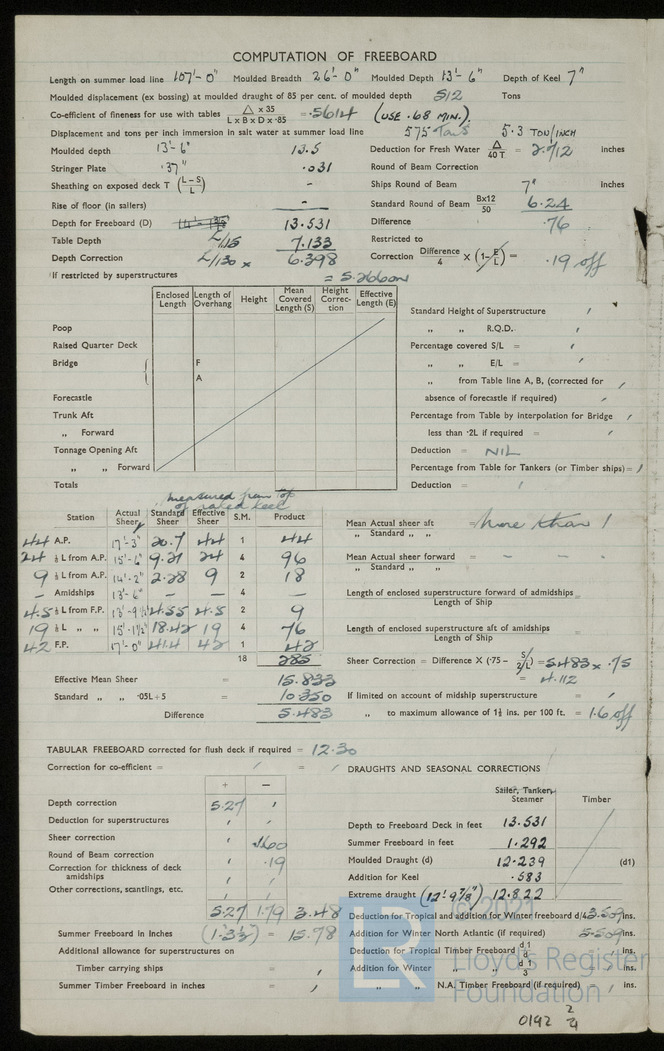 COMPUTATION OF FREEBOARD
Length on summer load line 107'-0" Moulded Breadth 26'-0" Moulded Depth 13'-6" Depth of Keel 7"
Moulded displacement (ex bossing) at moulded draught of 85 per cent. of moulded depth 512 Tons
Co-efficient of fineness for use with tables △ x 35 / L x B x D x ·85 = ·5614 (USE ·68 MIN.)
Displacement and tons per inch immersion in salt water at summer load line 575 Tons 5·3 TON/INCH
Moulded depth 13'-6" 13.5
Stringer Plate ·37" ·031
Sheathing on exposed deck T (L–S / L) –
Rise of floor (in sailers) –
Depth for Freeboard (D) 13.531
Table Depth L/15 7.133
Depth Correction L/130 x 6.398
if restricted by superstructures
Deduction for Fresh Water △ / 40 T = 2.712 inches
Round of Beam Correction
Ships Round of Beam 7" inches
Standard Round of Beam Bx12 / 50 6.24
Difference ·76
Restricted to
Correction Difference / 4 X (1– E / L) = ·19 off
Enclosed Length Length of Overhang Height Mean Covered Length (S) Height Correction Effective Length (E)
Poop
Raised Quarter Deck
Bridge F
A
Forecastle
Trunk Aft
„ Forward
Tonnage Opening Aft
„ „ Forward
Totals
Standard Height of Superstructure /
„ „ R.Q.D. /
Percentage covered S/L = /
„ „ E/L = /
„ from Table line A, B, (corrected for
absence of forecastle if required) /
Percentage from Table by interpolation for Bridge /
less than ·2L if required = /
Deduction = NIL
Percentage from Table for Tankers (or Timber ships) = /
Deduction = /
measured from top
of raked keel
Station Actual Sheer Standard Sheer Effective Sheer S.M. Product
44 A.P. 17'-3" 20.7 44 1 44
24 ⅙ L from A.P. 15'-6" 9.21 24 4 96
9 ⅓ L from A.P. 14'-2" 2.28 9 2 18
– Amidships 13'-6" – – 4 –
4.5 ⅓ L from F.P. 13'-9½" 4.55 4.5 2 9
19 ⅙ L „ „ 15'-1½" 18.42 19 4 76
42 F.P. 17'-0" 41.4 42 1 42
18 285
Effective Mean Sheer = 15.833
Standard „ „ ·05L+5 = 10.350
Difference 5.483
Mean Actual sheer aft / „ Standard „ „ = More than 1
Mean Actual sheer forward / „ Standard „ „ = – – –
Length of enclosed superstructure forward of amidships / Length of Ship =
Length of enclosed superstructure aft of amidships / Length of Ship =
Sheer Correction = Difference X (·75 – S / 2/L) = 5.483 x ·75
= 4.112
If limited on account of midship superstructure = /
„ to maximum allowance of 1½ ins. per 100 ft. = 1·6 off
TABULAR FREEBOARD corrected for flush deck if required = 12.30
Correction for co-efficient = / = /
+ –
Depth correction 5.27 /
Deduction for superstructures / /
Sheer correction / 1.60
Round of Beam correction / ·19
Correction for thickness of deck amidships / /
Other corrections, scantlings, etc. / /
5.27 1.79 3.48
Summer Freeboard in Inches (1'-3½") = 15.78
Additional allowance for superstructures on
Timber carrying ships = /
Summer Timber Freeboard in inches = /
DRAUGHTS AND SEASONAL CORRECTIONS
Sailer, Tanker, Steamer Timber
Depth to Freeboard Deck in feet 13.531
Summer Freeboard in feet 1.292
Moulded Draught (d) 12.239 (d1)
Addition for Keel ·583
Extreme draught (12'-9⅞") 12.822
Deduction for Tropical and addition for Winter freeboard d/4 3.509 ins.
Addition for Winter North Atlantic (if required) 5.509 ins.
Deduction for Tropical Timber Freeboard d 1 / d = / ins.
Addition for Winter „ „ d 1 / 3 = / ins.
„ „ N.A. Timber Freeboard (if required) = / ins.
© 2021
LR
Lloyd's Register
Foundation
0192 2/4